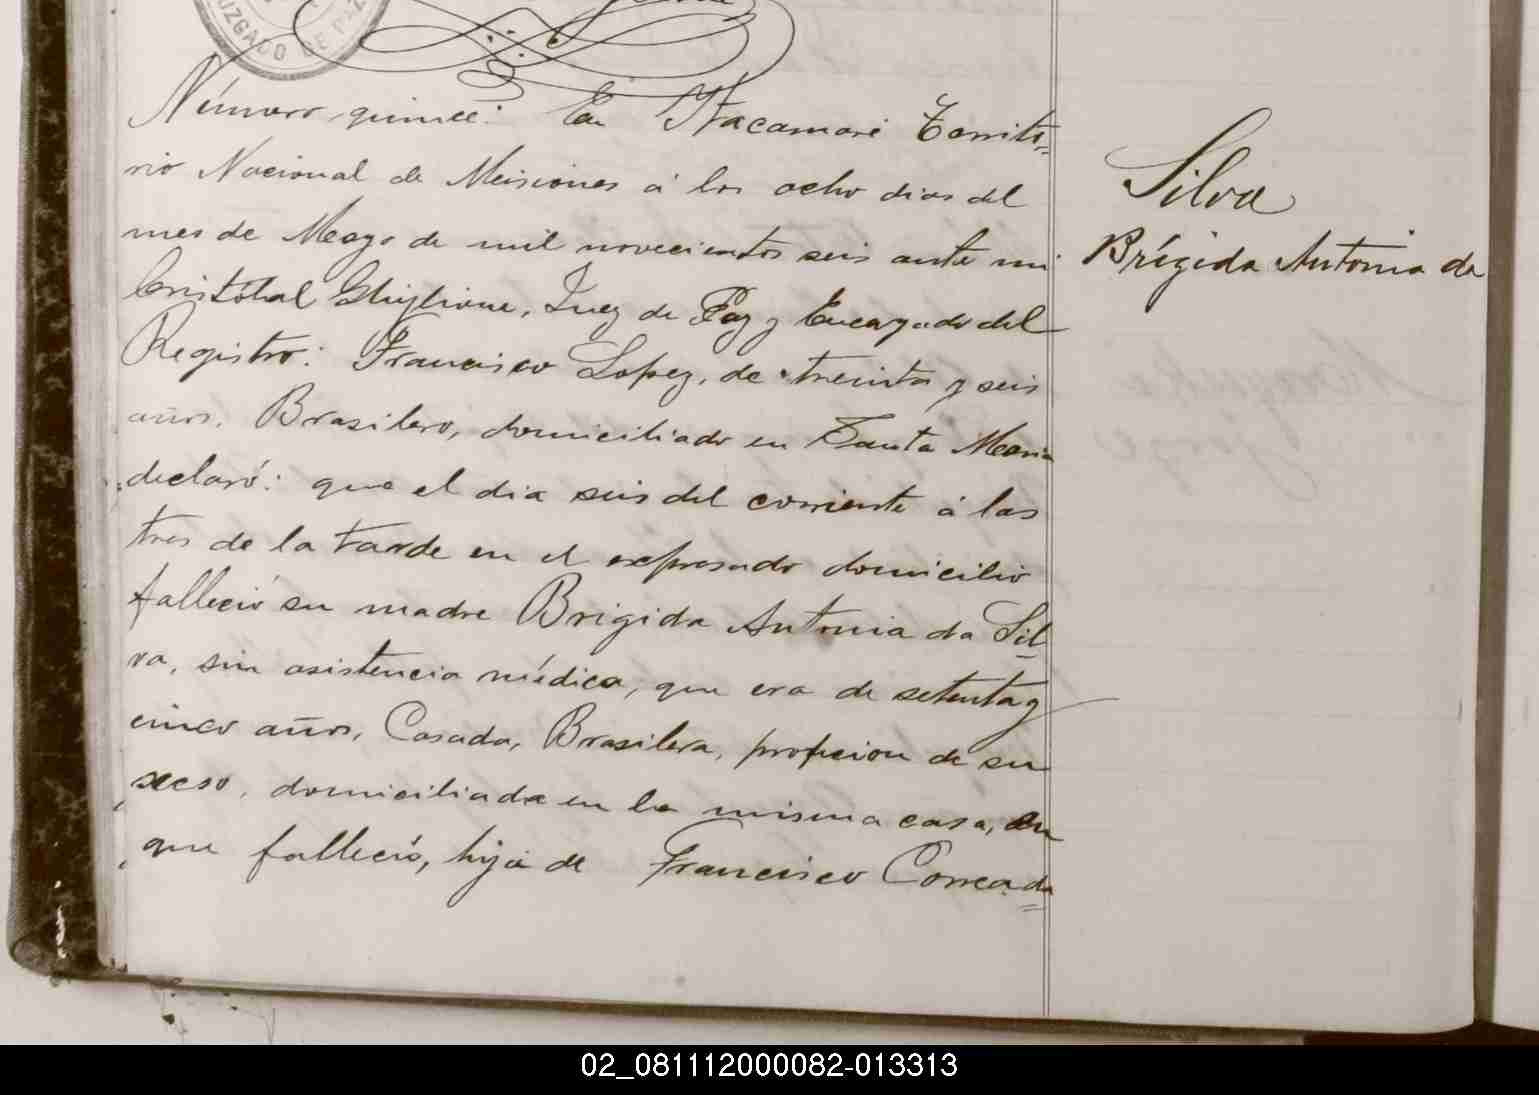 JUZGADO DE PAZ
Número quince: En Itacaruaré Territo=
rio Nacional de Misiones á los ocho dias del
mes de Mayo de mil novecientos seis ante mi
Cristóbal Ghiglione, Juez de Paz y Encargado del
Registro: Francisco Lopez, de treinta y seis
años, Brasilero, domiciliado en Santa Maria
declaró: que el dia seis del corriente á las
tres de la tarde en el expresado domicilio
falleció su madre Brigida Antonia da Sil=
va, sin asistencia médica, que era de setenta y
cinco años, Casada, Brasilera, profecion de su
secso, domiciliada en la misma casa, en
que falleció, hija de Francisco Correa da
Silva
Brígida Antonia da
02_081112000082-013313